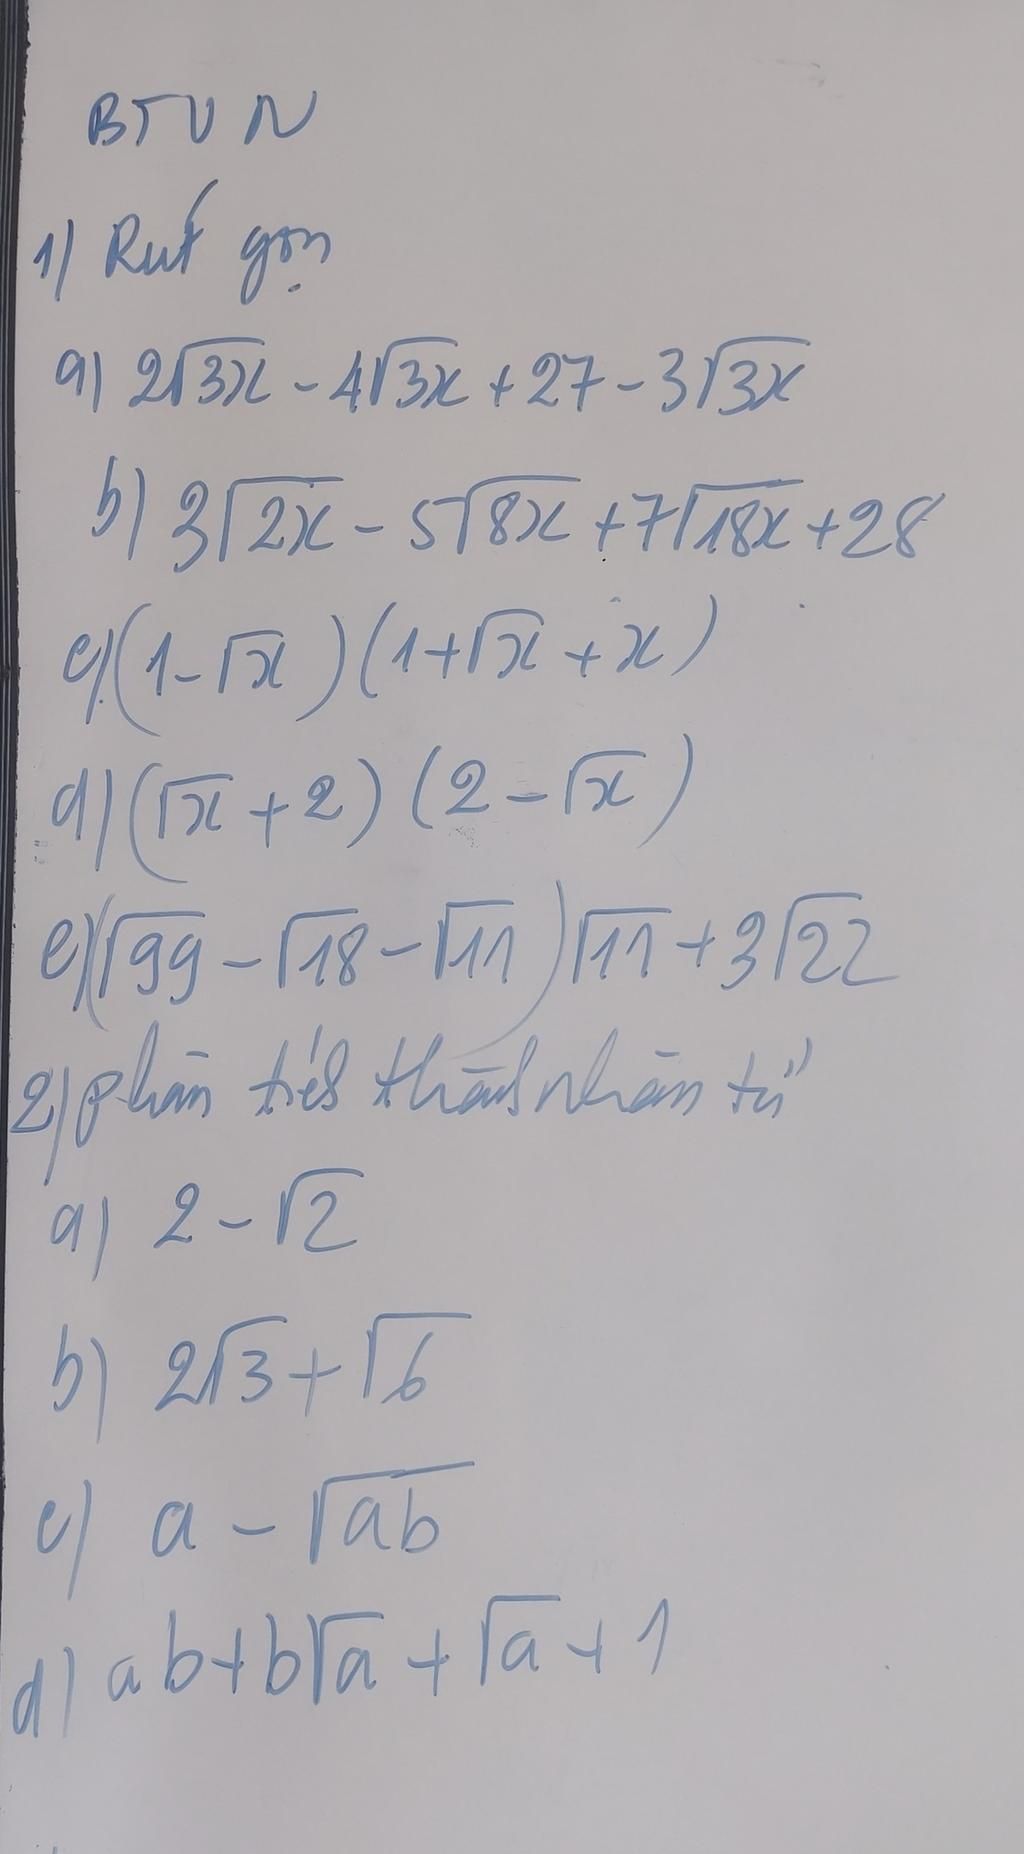 BTVN
1) Rút gọn
a) 2√3x - 4√3x + 27 - 3√3x
b) 3√2x - 5√8x + 7√18x + 28
c) (1-√x)(1+√x + x)
d) (√x + 2)(2 - √x)
e) (√99 - √18 - √11)√11 + 3√22
2) phân tích thành nhân tử
a) 2 - √2
b) 2√3 + √6
c) a - √ab
d) ab + b√a + √a + 1